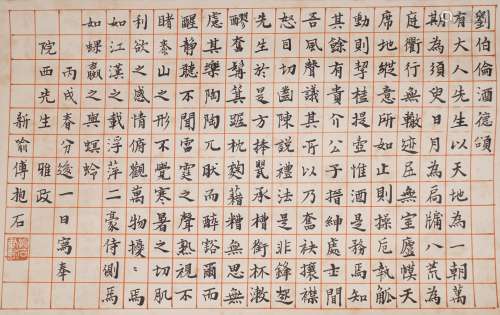 劉伯倫酒德頌
有大人先生以天地為一朝萬
期為須臾日月為扃牖八荒為
庭衢行無轍迹居無室廬幙天
席地縱意所如止則操卮執觚
動則挈榼提壺惟酒是務焉知
其餘有貴介公子搢紳處士聞
吾風聲議其所以乃奮袂攘襟
怒目切齒陳說禮法是非鋒起
先生於是方捧甖承槽銜杯漱
醪奮髯箕踞枕麴藉糟無思無
慮其樂陶陶兀然而醉豁爾而
醒靜聽不聞雷霆之聲熟視不
睹泰山之形不覺寒暑之切肌
利欲之感情俯觀萬物擾〻焉
如江漢之載浮萍二豪侍側焉
如蜾蠃之與螟蛉
丙戌春分後一日寫奉
院西先生 雅政
新喻傅抱石